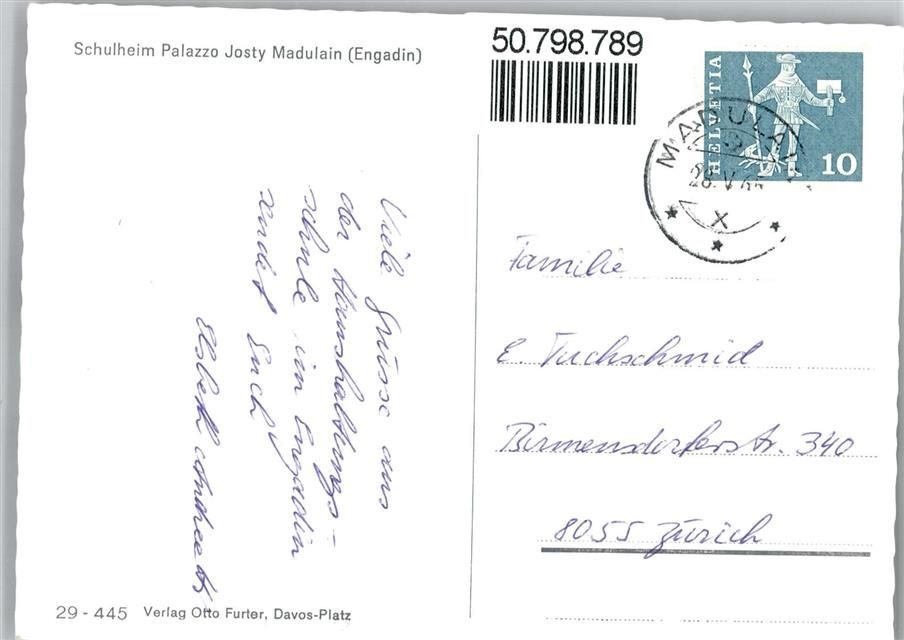 Schulheim Palazzo Josty Madulain (Engadin)
50.798.789
HELVETIA
10
MADULAIN
28. V.
X
Viele Grüsse aus
der Haushaltungs-
schule im Engadin
sendet Euch
Elsbeth
Familie
E. Tuchschmid
Birmensdorferstr. 340
8055 Zürich
29 - 445 Verlag Otto Furter, Davos-Platz